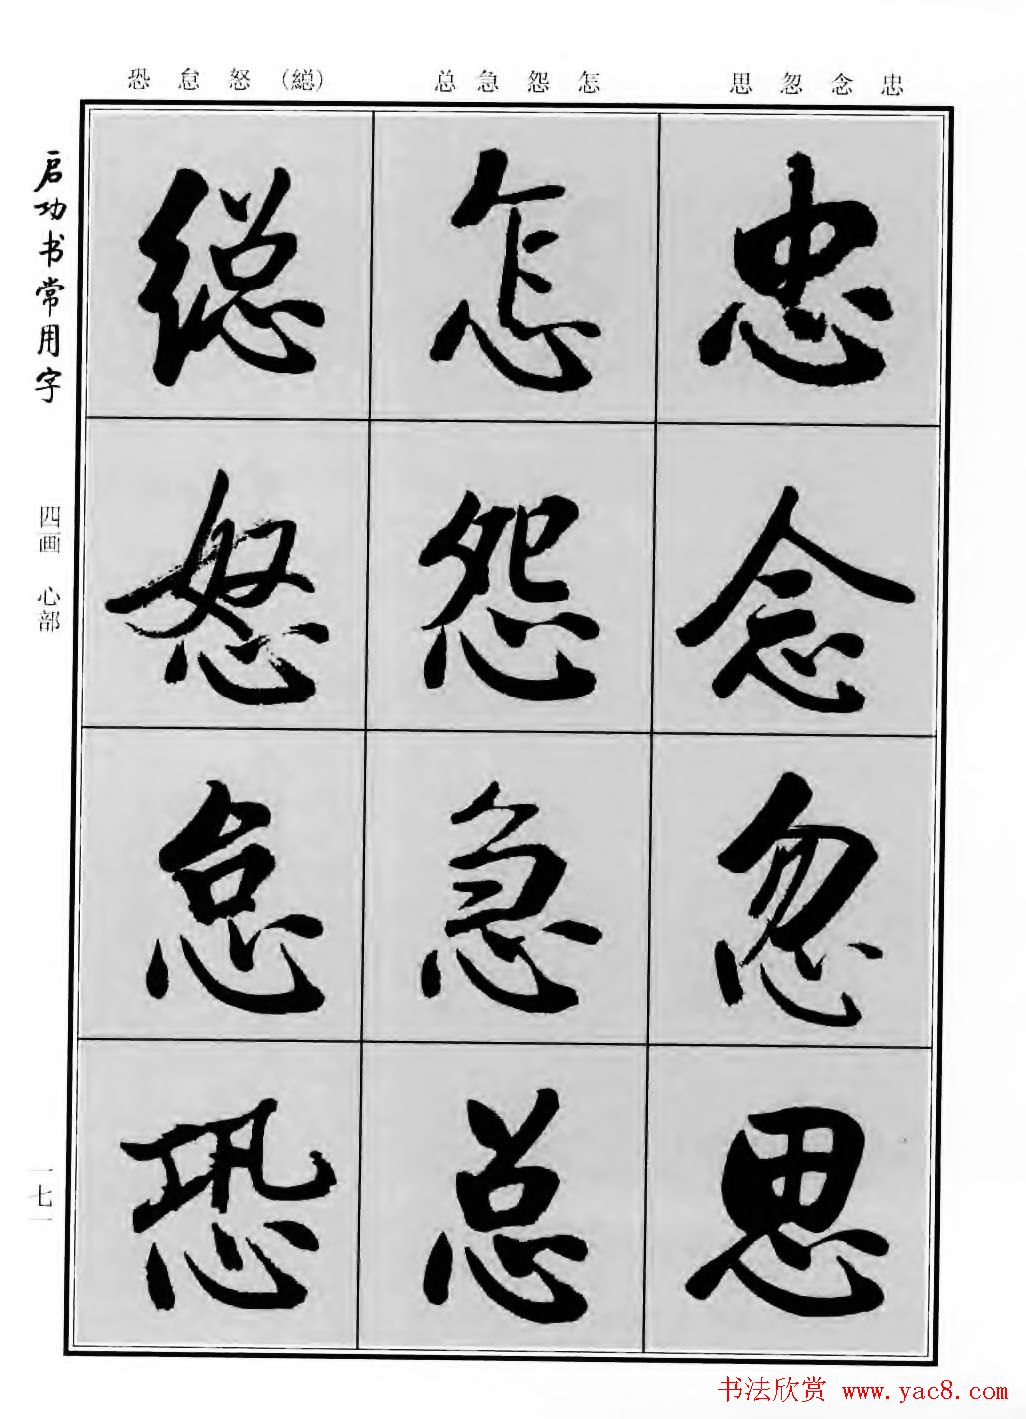 恐 怠 怒 （緫） 总 急 怨 怎 思 忽 念 忠
启功书常用字
四画 心部
一七一
忠
念
忽
思
怎
怨
急
总
緫
怒
怠
恐
书法欣赏 www.yac8.com